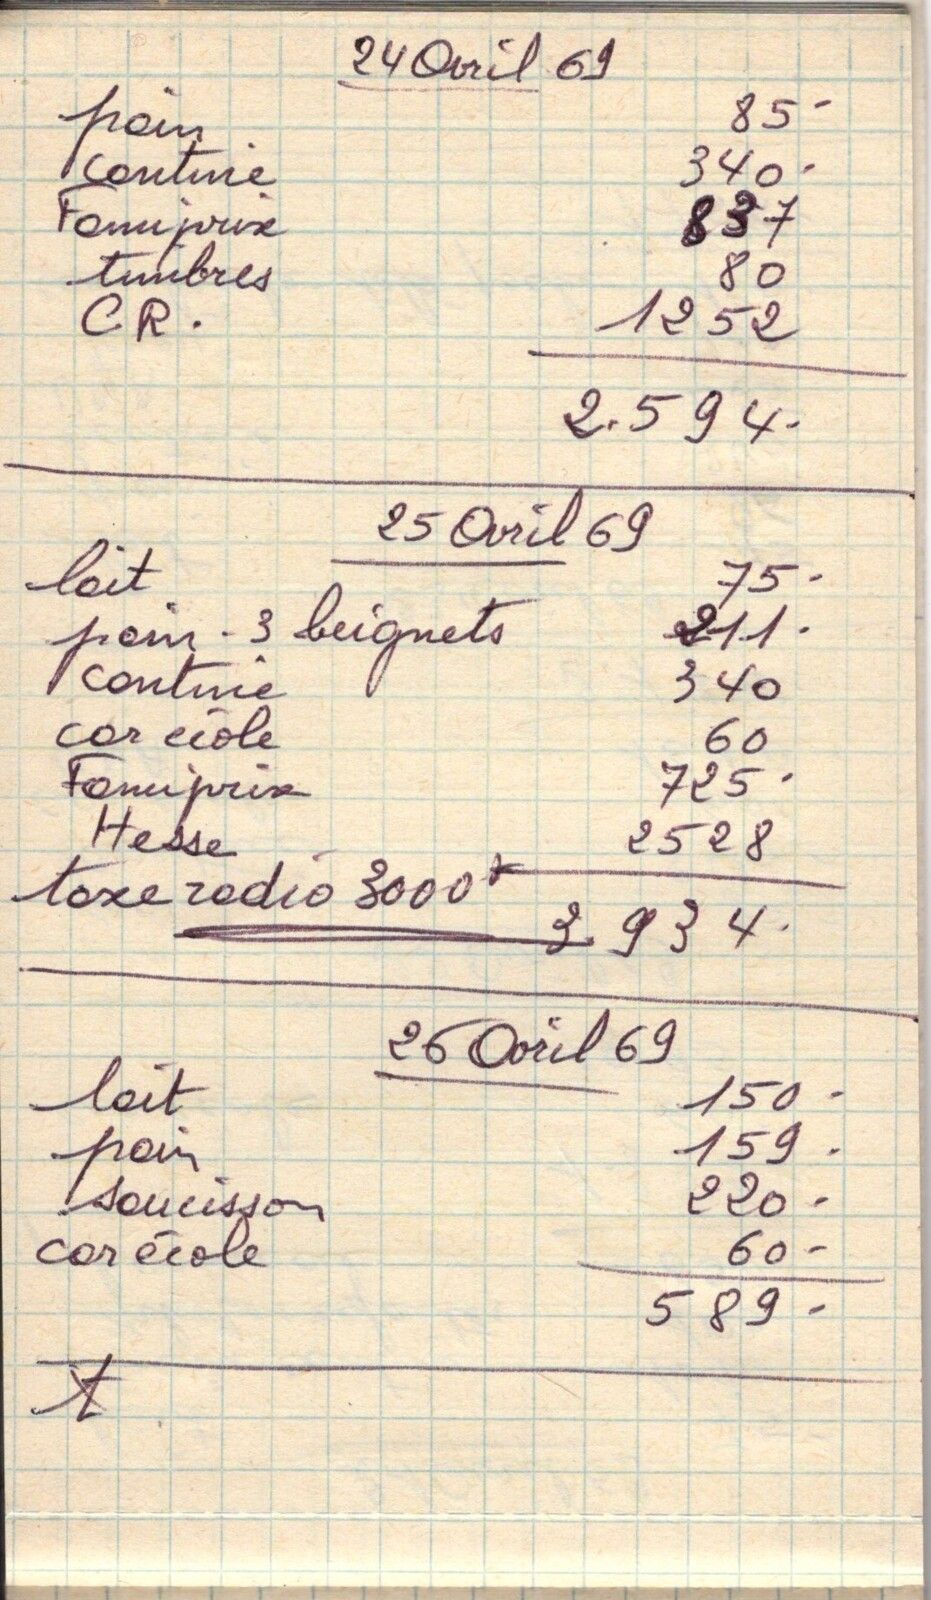 24 Avril 69
pain 85-
cantine 340-
Famiprix 837
timbres 80
CR. 1252
2.594-
25 Avril 69
lait 75-
pain - 3 beignets 211-
cantine 340
car école 60
Famiprix 725-
Hesse 2528
taxe radio 3000
3.934-
26 Avril 69
lait 150-
pain 159-
saucisson 220-
car école 60-
589-